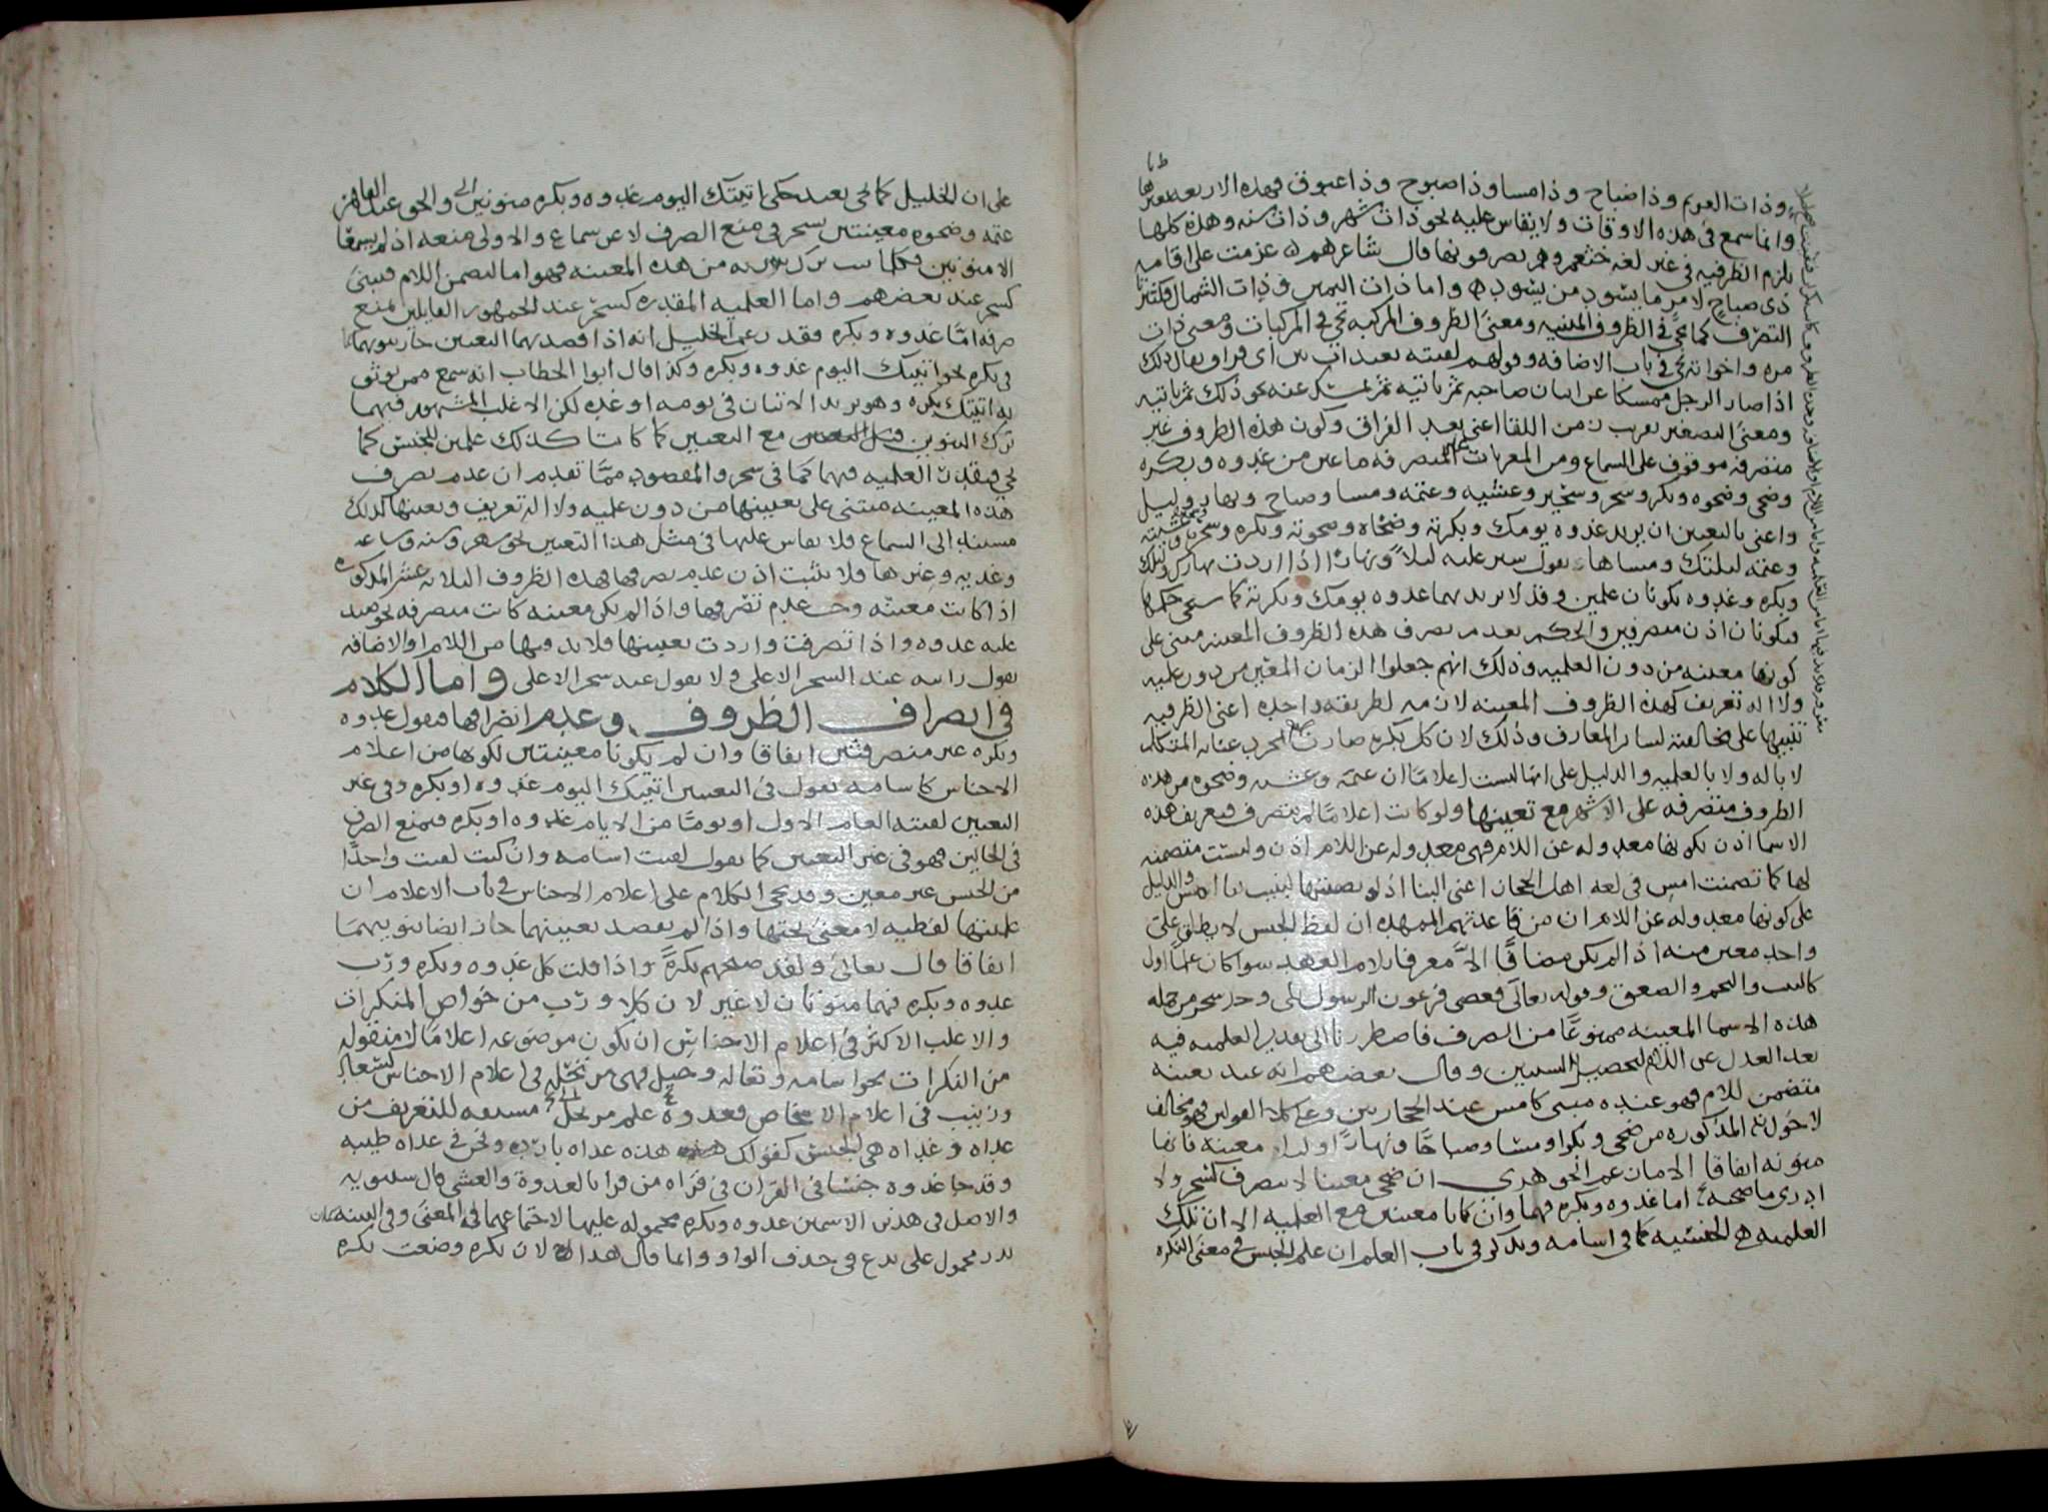 وذات العويم وذا صباح وذا مسا وذا صبوح وذا غبوق فهذه الاربعه بغيرها
وانما سمع في هذه الاوقات ولا يقاس عليه نحو ذات شهر وذات سنه وهذه كلها
يلزم الظرفيه في غير لغه خثعم وهم يصرفونها قال شاعرهم عزمت على اقامه
ذى صباح لامر ما يسود من يسود واما ذات اليمين وذات الشمال فكثيرا
التصرف كما يجى فى الظروف المبنيه ومعنى الظروف المركبه يجى في المركبات ومعنى ذات
مره واخواته يجى في باب الاضافه وقولهم لقيته بعيدات بين اى فراق يقال ذلك
اذا صار الرجل ممسكا عن اتيان صاحبه ثم ياتيه ثم يمسك عنه نحو ذلك ثم ياتيه
ومعنى التصغير تقريب زمن اللقا اعنى بعد الفراق وكون هذه الظروف غير
متصرفه موقوف على السماع ومن المعربات غير المتصرفه ما عين من غدوه وبكره
وضحى وضحوه وبكر وسحر وسحير وعشيه وعتمه ومسا وصباح ونهار وليل
واعنى بالتعيين ان يريد غدوه يومك وبكرته وضحاه وضحوته وبكره وسحر وعشيته
وعتمه ليلتك ومساها تقول سير عليه ليلا ونهارا اذا اردت نهارك وليلك
وبكره وغدوه يكونان علمين وقد لا يريد بهما غدوه يومك وبكرته كما سيجى حكمها
فيكونان اذن متصرفين والحكم بعدم تصرف هذه الظروف المعينه مبنى على
كونها معينه من دون العلميه وذلك انهم جعلوا الزمان المعين من دون علميه
ولا اله تعريف كهذه الظروف المعينه لازمه لطريقه واحده اعنى الظرفيه
تنبيها على مخالفته لسائر المعارف وذلك لان كل بكره صارت بالتحرب عنايه المتكلم
لا باله ولا بالعلميه والدليل على انها ليست اعلاما ان عتمه وعشيه وضحوه من هذه
الظروف منصرفه على الاشهر مع تعينها ولو كانت اعلاما لم تنصرف فتعريف هذه
الاسما اذن بكونها معدوله عن اللام فهى معدوله عن اللام اذن وليست متضمنه
لها كما تضمنت امس في لغه اهل الحجاز اعنى البنا اذ لو تضمنتها لبنيت بنا امس والدليل
على كونها معدوله عن اللام ان من قاعدتهم الممهده ان لفظ الجنس لا يطلق على
واحد معين منه اذا لم يكن مضافا الا معرفا بلام العهد سوا كان علما اول
كالبيت والنجم والصعق وقوله تعالى فعصى فرعون الرسول اولا وجد سحر من جمله
هذه الاسما المعينه ممنوعا من الصرف فاضطررنا الى تقدير العلميه فيه
بعد العدل عن اللام لتحصيل السببين وقال بعضهم انه عند تعينه
متضمن للام فهو عنده مبنى كامس عند الحجازيين وعلى كلا القولين فهو مخالف
لاخواته المذكوره من ضحى وبكر ومسا وصباحا ونهارا وليلا معينه فانها
منونه اتفاقا الا ما نقل عن الجوهرى ان ضحى معينا لا ينصرف كسحر ولا
ادرى ما صحته اما غدوه وبكره فهما وان كانا معينين مع العلميه الا ان تلك
العلميه هى الجنسيه كما فى اسامه ويذكر في باب العلم ان علم الجنس في معنى النكره
على ان الخليل كما يجى بعيد حكى اتيتك اليوم غدوه وبكره منونين
عتمه وضحوه معينتين بسحر في منع الصرف لا عن سماع والاولى منعه اذ لم يسمعا
الا منونين فكلما ترك تنوينه من هذه المعينه فهو اما لتضمن اللام فيبنى
كسحر عند بعضهم واما العلميه المقدره كسحر عند الجمهور القايلين بمنع
صرفه امّا غدوه وبكره فقد زعم الخليل انه اذا قصد بهما التعيين جاز تنوينهما
في بكره نحو اتيتك اليوم غدوه وبكره وكذا قال ابوا الخطاب انه سمع ممن يوثق
به اتيتك بكره وهو يريد الاتيان في يومه او غده لكن الاغلب المشهور فيهما
ترك التنوين مع التعيين كما كانتا كذلك علمين للجنس كما
يجى فيقدر العلميه فيهما كما في سحر والمقصود مما تقدم ان عدم تصرف
هذه المعينه مبنى على تعيينها من دون علميه ولا اله تعريف وتعينها كذلك
مستند الى السماع فلا يقاس عليها في مثل هذا التعيين نحو شهر وسنه وساعه
وغديه وغيرها فلا يثبت اذن عدم تصرفها فهذه الظروف الثلاثه عشر المذكوره
اذا كانت معينه وجب عدم تصرفها واذا لم يكن معينه كانت متصرفه نحو صيد
عليه غدوه واذا تصرفت واردت تعيينها فلا بد فيها من اللام او الاضافه
تقول رايته عند السحر الاعلى ولا تقول عند سحر الاعلى واما الكلام
في انصراف الظروف وعدم انصرافها فنقول غدوه
وبكره غير منصرفتين اتفاقا وان لم يكونا معينتين لكونهما من اعلام
الاجناس كاسامه تقول في التعيين اتيتك اليوم غدوه او بكره وفي غير
التعيين لقيته العام الاول او يوما من الايام غدوه او بكره فيمنع الصرف
في الحالين فهو في غير التعيين كما تقول لقيت اسامه وان كنت لقيت واحدا
من الجنس غير معين وقد يجى الكلام على اعلام الاجناس في باب الاعلام ان
علميتها لفظيه لا معنى تحتها واذا لم يقصد تعيينهما جاز ايضا تنوينهما
اتفاقا قال تعالى ولقد صبحهم بكرة واذا قلت كل غدوه وبكره ورب
غدوه وبكره فهما منونان لا غير لان كلا ورب من خواص المنكرات
والاغلب الاكثر في اعلام الاجناس ان يكون موضوعه اعلاما لا منقوله
من النكرات نحو اسامه وثعاله وجيل فهى مرتجله في اعلام الاجناس كسعاد
وزينب في اعلام الاشخاص فغدوه علم مرتجل مشتقه للتعريف من
غداه وغداه هى الجنس كقولك هذه غداه بارده ونحن في غداه طيبه
وقد جا غدوه جنسا في القران في قراه من قرا بالغدوة والعشى قال سيبويه
والاصل في هذين الاسمين غدوه وبكره محموله عليها لاجتماعهما في المعنى وفي البنيه
يذر محمول على يدع في حذف الواو وانما قال هذا لان بكره وضعت بكره